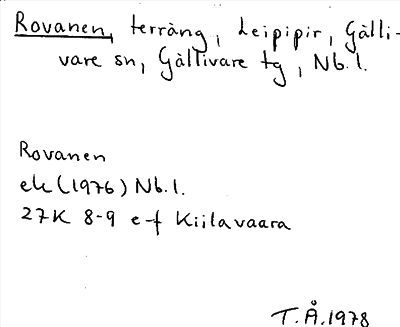 Rovanen, terräng, Leipipir, Gälli-
vare sn, Gällivare tg, Nb.l.
Rovanen
ek (1976) Nb.l.
27K 8-9 e-f Kiilavaara
T.Å.1978